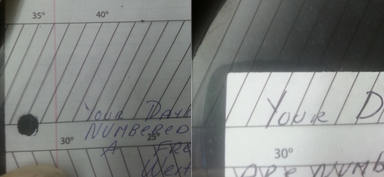 35° 40°
Your Days
Numbered
30° 25°
A Fre
West
Your D
30°
Are Numb